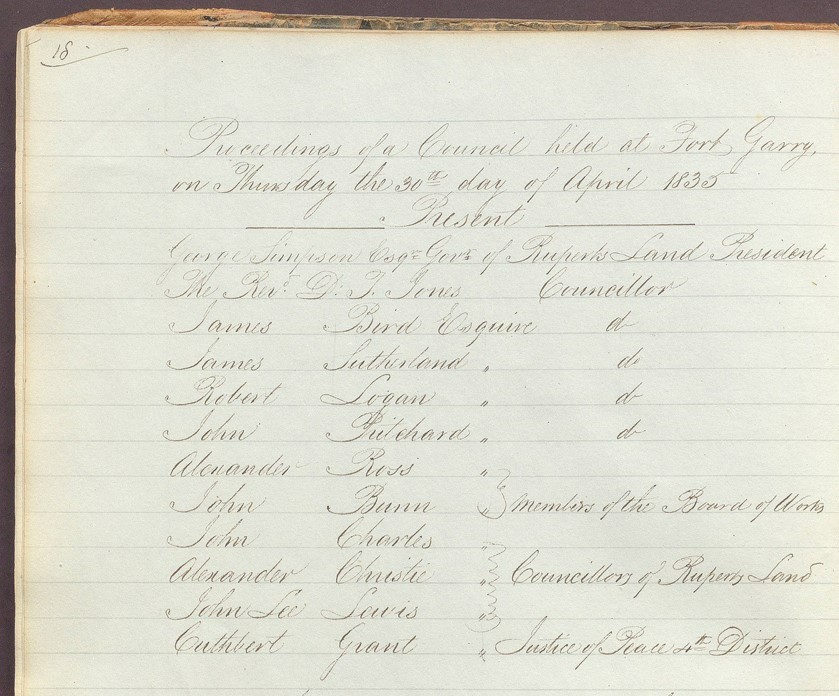 18
Proceedings of a Council held at Fort Garry,
on Thursday the 30th day of April 1835
Present
George Simpson Esqr Govr of Ruperts Land President
The Revd D. T. Jones Councillor
James Bird Esquire do
James Sutherland „ do
Robert Logan „ do
John Pritchard „ do
Alexander Ross „
John Bunn „ Members of the Board of Works
John Charles „
Alexander Christie „ Councillors of Ruperts Land
John Lee Lewis „
Cuthbert Grant „ Justice of Peace 4th District